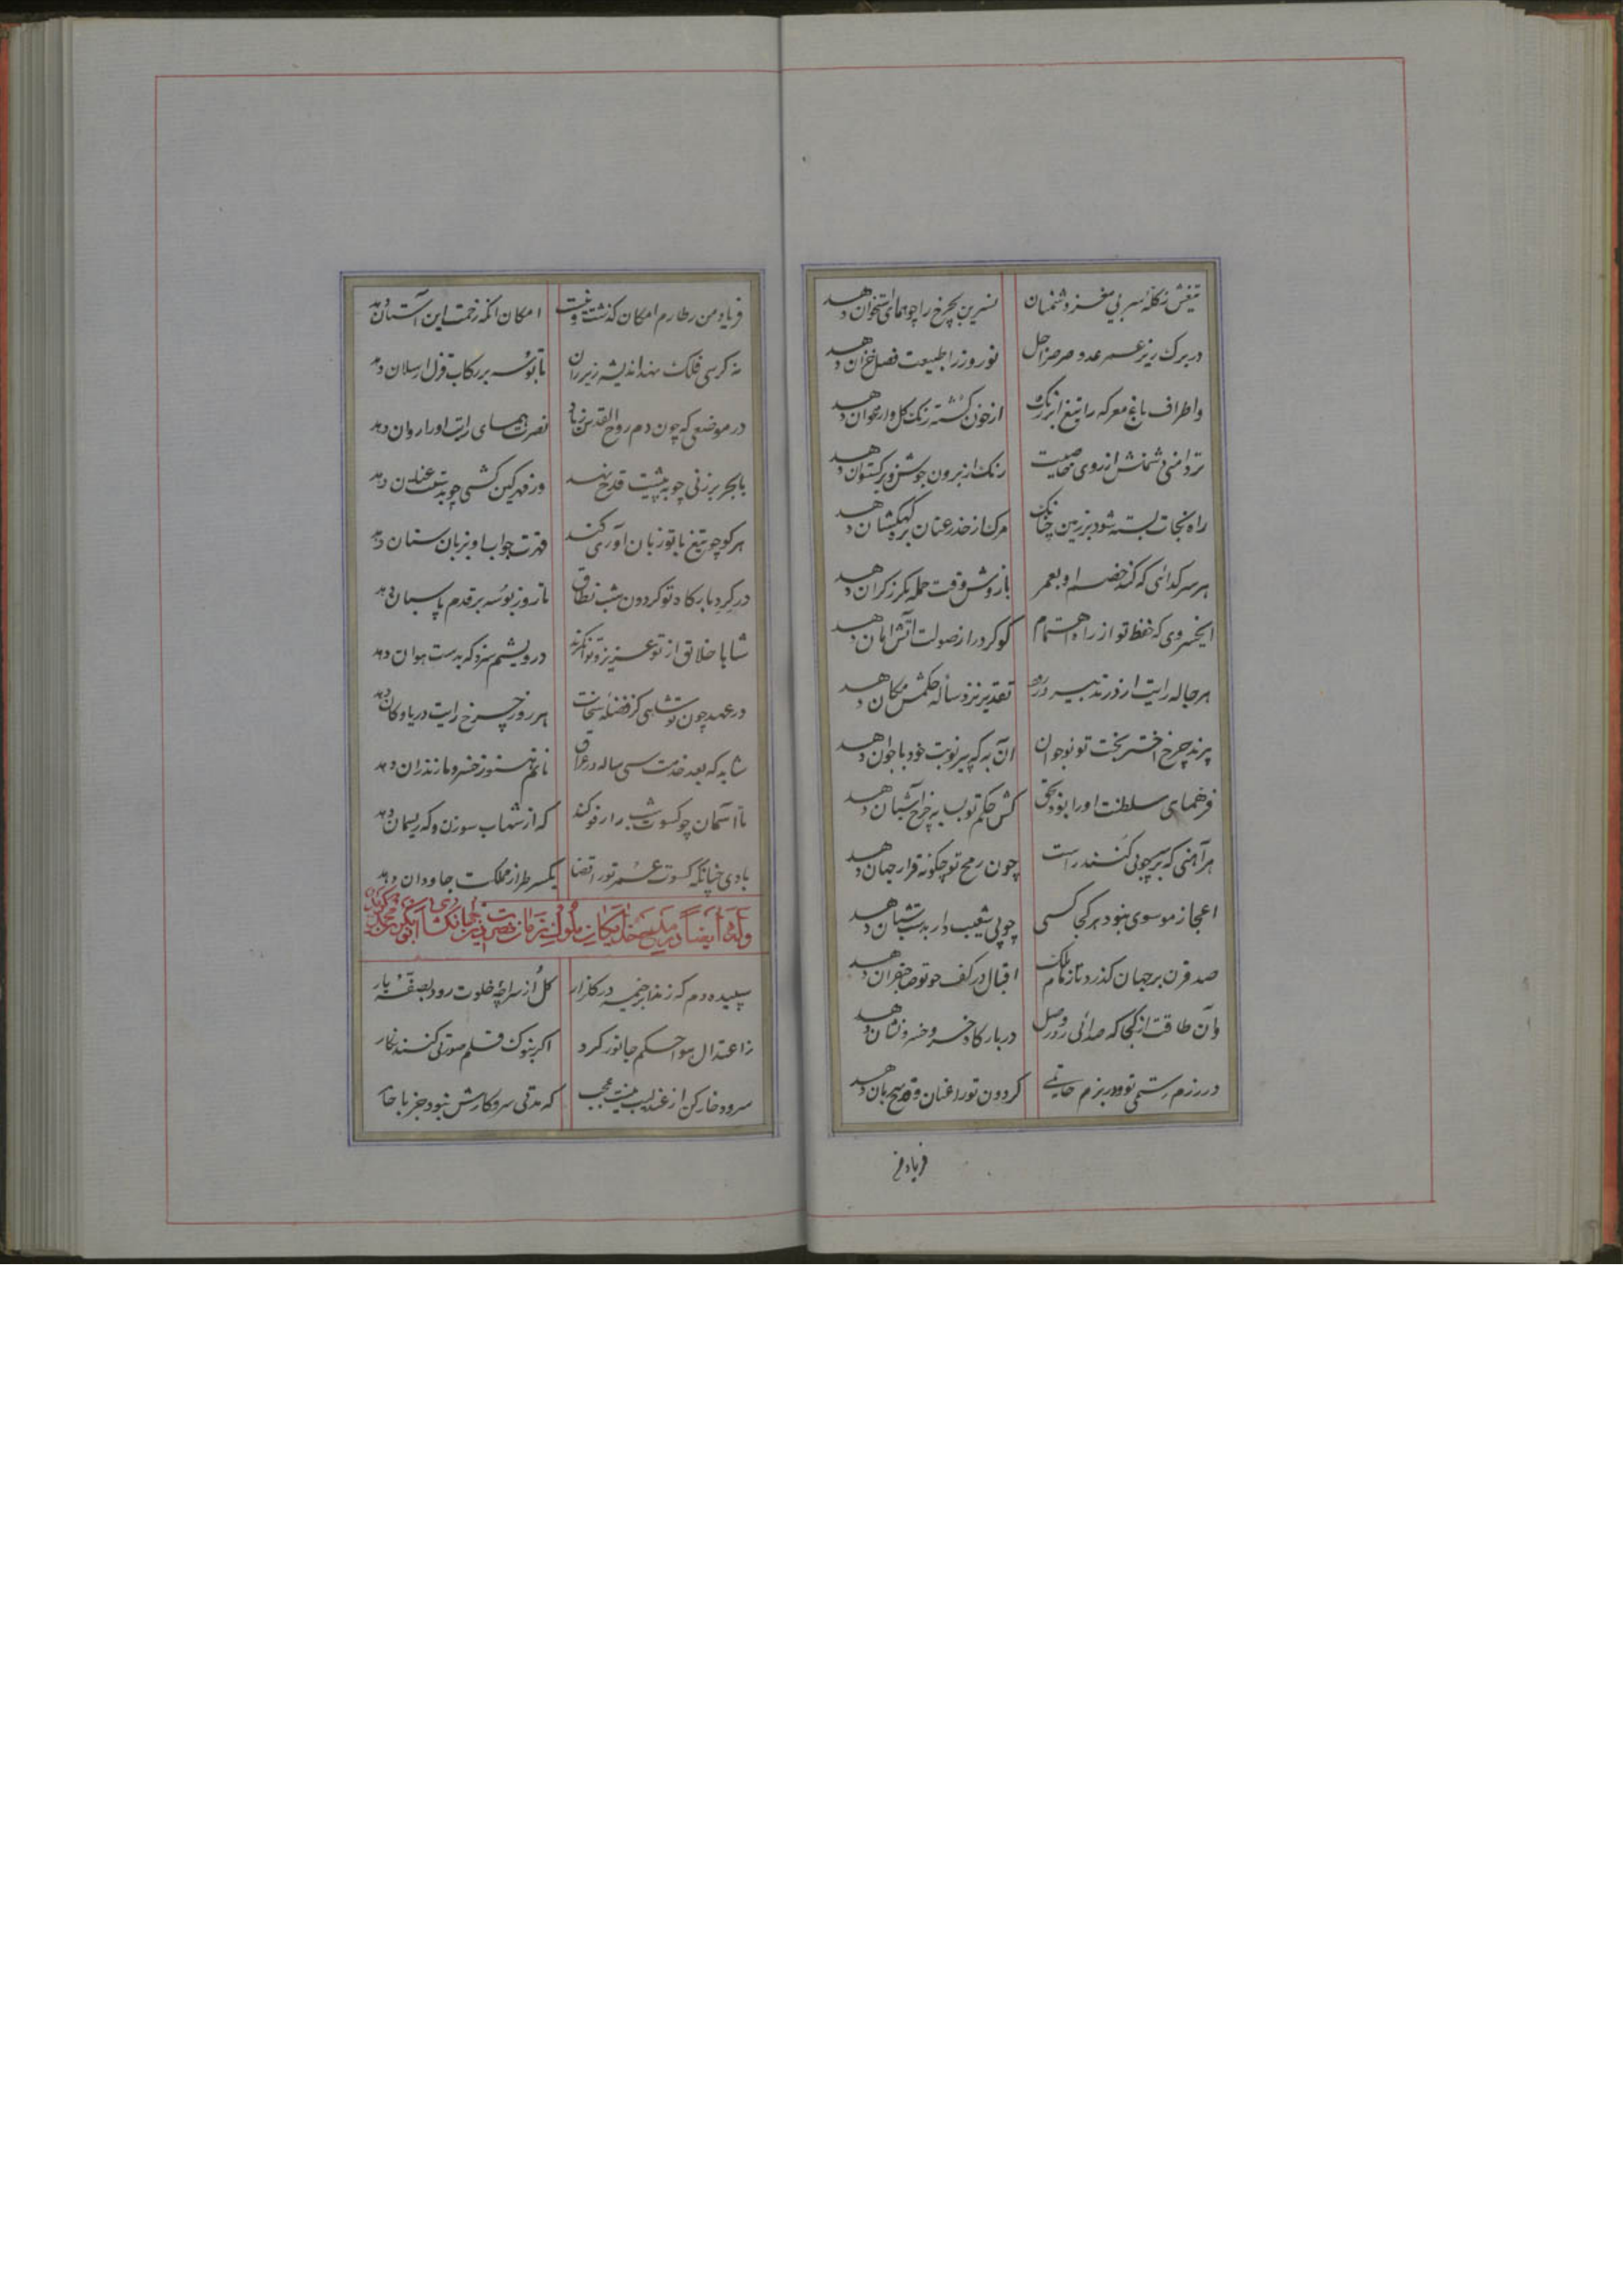 تیغش ز کلهٔ سر بی مغز دشمنان نسرین چرخ را چو همای استخوان دهد
در برک ریز عمر عدو صرصر اجل نوروز را طبیعت فصل خزان دهد
واطراف باغ معرکه را تیغ ابر رنک از خون کشته رنک کل و ارغوان دهد
تر دامنی دشمنش از روی خاصیت رنک از برون جوشن و برکستوان دهد
راه نجات بسته شود بر زمین چنانک مرک از حذر عنان بره کهکشان دهد
هر سر کرانی که کند خصم او بعمر بازوش وقت حمله بکرز کران دهد
ای خسروی که حفظ تو از راه اهتمام کوکرد را ز صولت آتش امان دهد
هر حاله رایت از در تدبیر در رود تقدیر نزد مسأله حکمش مکان دهد
پیرند چرخ اختر بخت تو نوجوان آن به که پیر نوبت خود با جوان دهد
فر همای سلطنت او را بود بحق کش حکم تو به چرخ آشیان دهد
هر آهنی که بر سر چوبی کنند راست چون رمح تو چکونه قرار جهان دهد
اعجاز موسوی نبود هر کجا کسی چوبی شعیب وار بدست شبان دهد
صد قرن بر جهان کذرد تا زمام ملک اقبال در کف چو تو صاحبقران دهد
وآن طاقت از کجا که صدائی رود وصل در بارکاه خسرو خسرو نشان دهد
در رزم رستمی تو و در بزم حاتمی کردون تو را عنان و قدح بهر آن دهد
فریاد من
فریاد من ز طارم امکان کذشت و نیست امکان آنکه زحمت این آستان دهد
نه کرسی فلک نهد اندیشه زیر ران تا بوسه بر رکاب قزل ارسلان دهد
در موضعی که چون دم روح القدس زباد نصرت همای رایت او را روان دهد
با بحر بر زنی چو به پیشت قدح نهد وز قهر کین کشی چو بدستت عنان دهد
هر کو چو تیغ با تو زبان آوری کند قهرت جواب او بزبان سنان دهد
در کرد بارکاه تو کردون شب نطاق تا روز بوسه بر قدم پاسبان دهد
شاها خلائق از تو عزیز و توانکرند درویشیم سزد که بدست هوان دهد
در عهد چون تو شاهی کز فضلهٔ سخات هر روز چرخ راتب دریا و کان دهد
شاید که بعد خدمت سی ساله در عراق نانم هنوز خسرو مازندران دهد
تا آسمان چو کسوت شب را رفو کند که از شهاب سوزن و که ریسمان دهد
بادی چنانکه کسوت عمر تو را قضا یکسر طراز مملکت جاودان دهد
وله ایضاً در مدیح خدایکان ملوک زمان نصرت الدین جهانکشا ابوبکر محمد کوید
سپیده دم که زند ابر خیمه در کلزار کل از سراچهٔ خلوت رود بصفهٔ بار
ز اعتدال هوا حکم جانور کیرد اکر بنوک قلم صورتی کنند نکار
سرود خارکن از عندلیب نیست عجب که مدتی سر و کارش نبود جز با خار